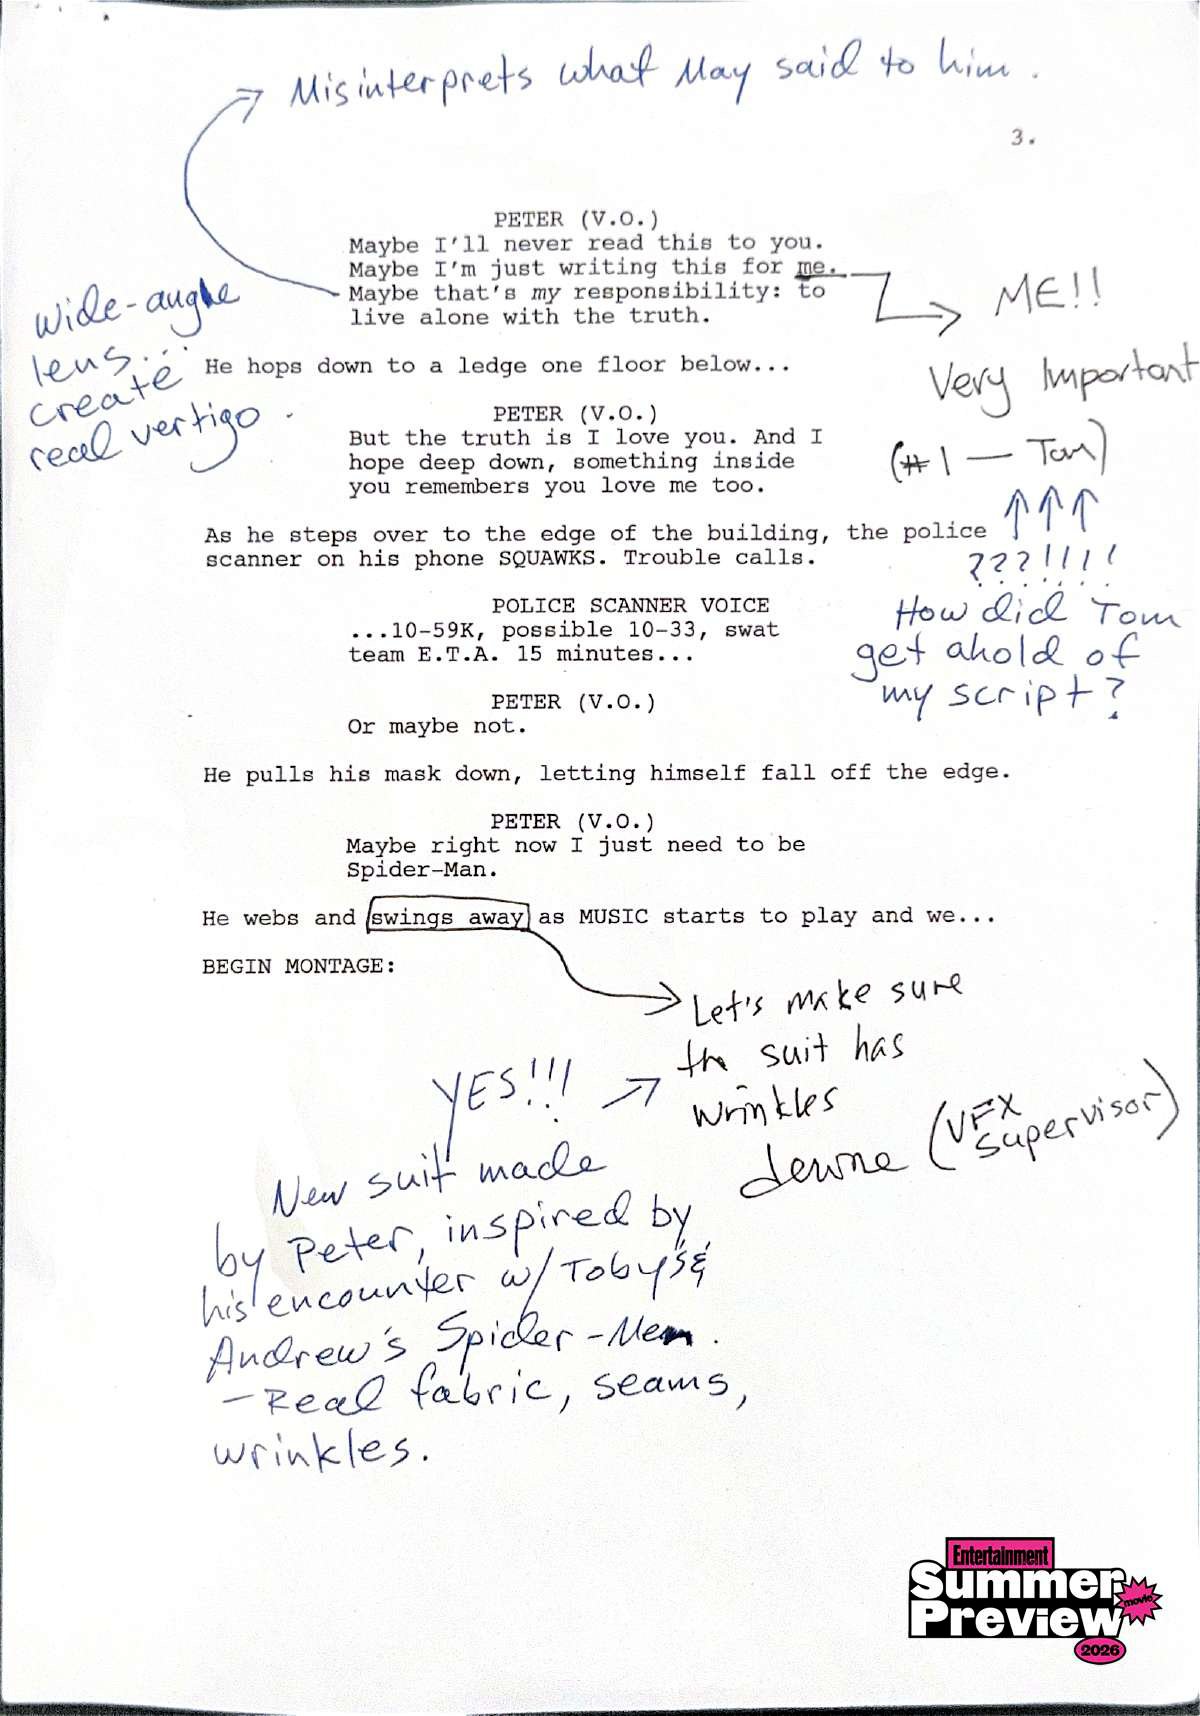 Misinterprets what May said to him.
3.
PETER (V.O.)
Maybe I'll never read this to you.
Maybe I'm just writing this for me.
Maybe that's my responsibility: to
live alone with the truth.
ME!!
Very Important
(#1 — Tom)
???!!!!
How did Tom
get ahold of
my script?
wide-angle
lens...
create
real vertigo.
He hops down to a ledge one floor below...
PETER (V.O.)
But the truth is I love you. And I
hope deep down, something inside
you remembers you love me too.
As he steps over to the edge of the building, the police
scanner on his phone SQUAWKS. Trouble calls.
POLICE SCANNER VOICE
...10-59K, possible 10-33, swat
team E.T.A. 15 minutes...
PETER (V.O.)
Or maybe not.
He pulls his mask down, letting himself fall off the edge.
PETER (V.O.)
Maybe right now I just need to be
Spider-Man.
He webs and swings away as MUSIC starts to play and we...
BEGIN MONTAGE:
Let's make sure
the suit has
wrinkles
(VFX
supervisor)
YES!!!
New suit made
by Peter, inspired by
his encounter w/ Toby's &
Andrew's Spider-Men.
- Real fabric, seams,
wrinkles.
Entertainment
Summer
movie
Preview
2026